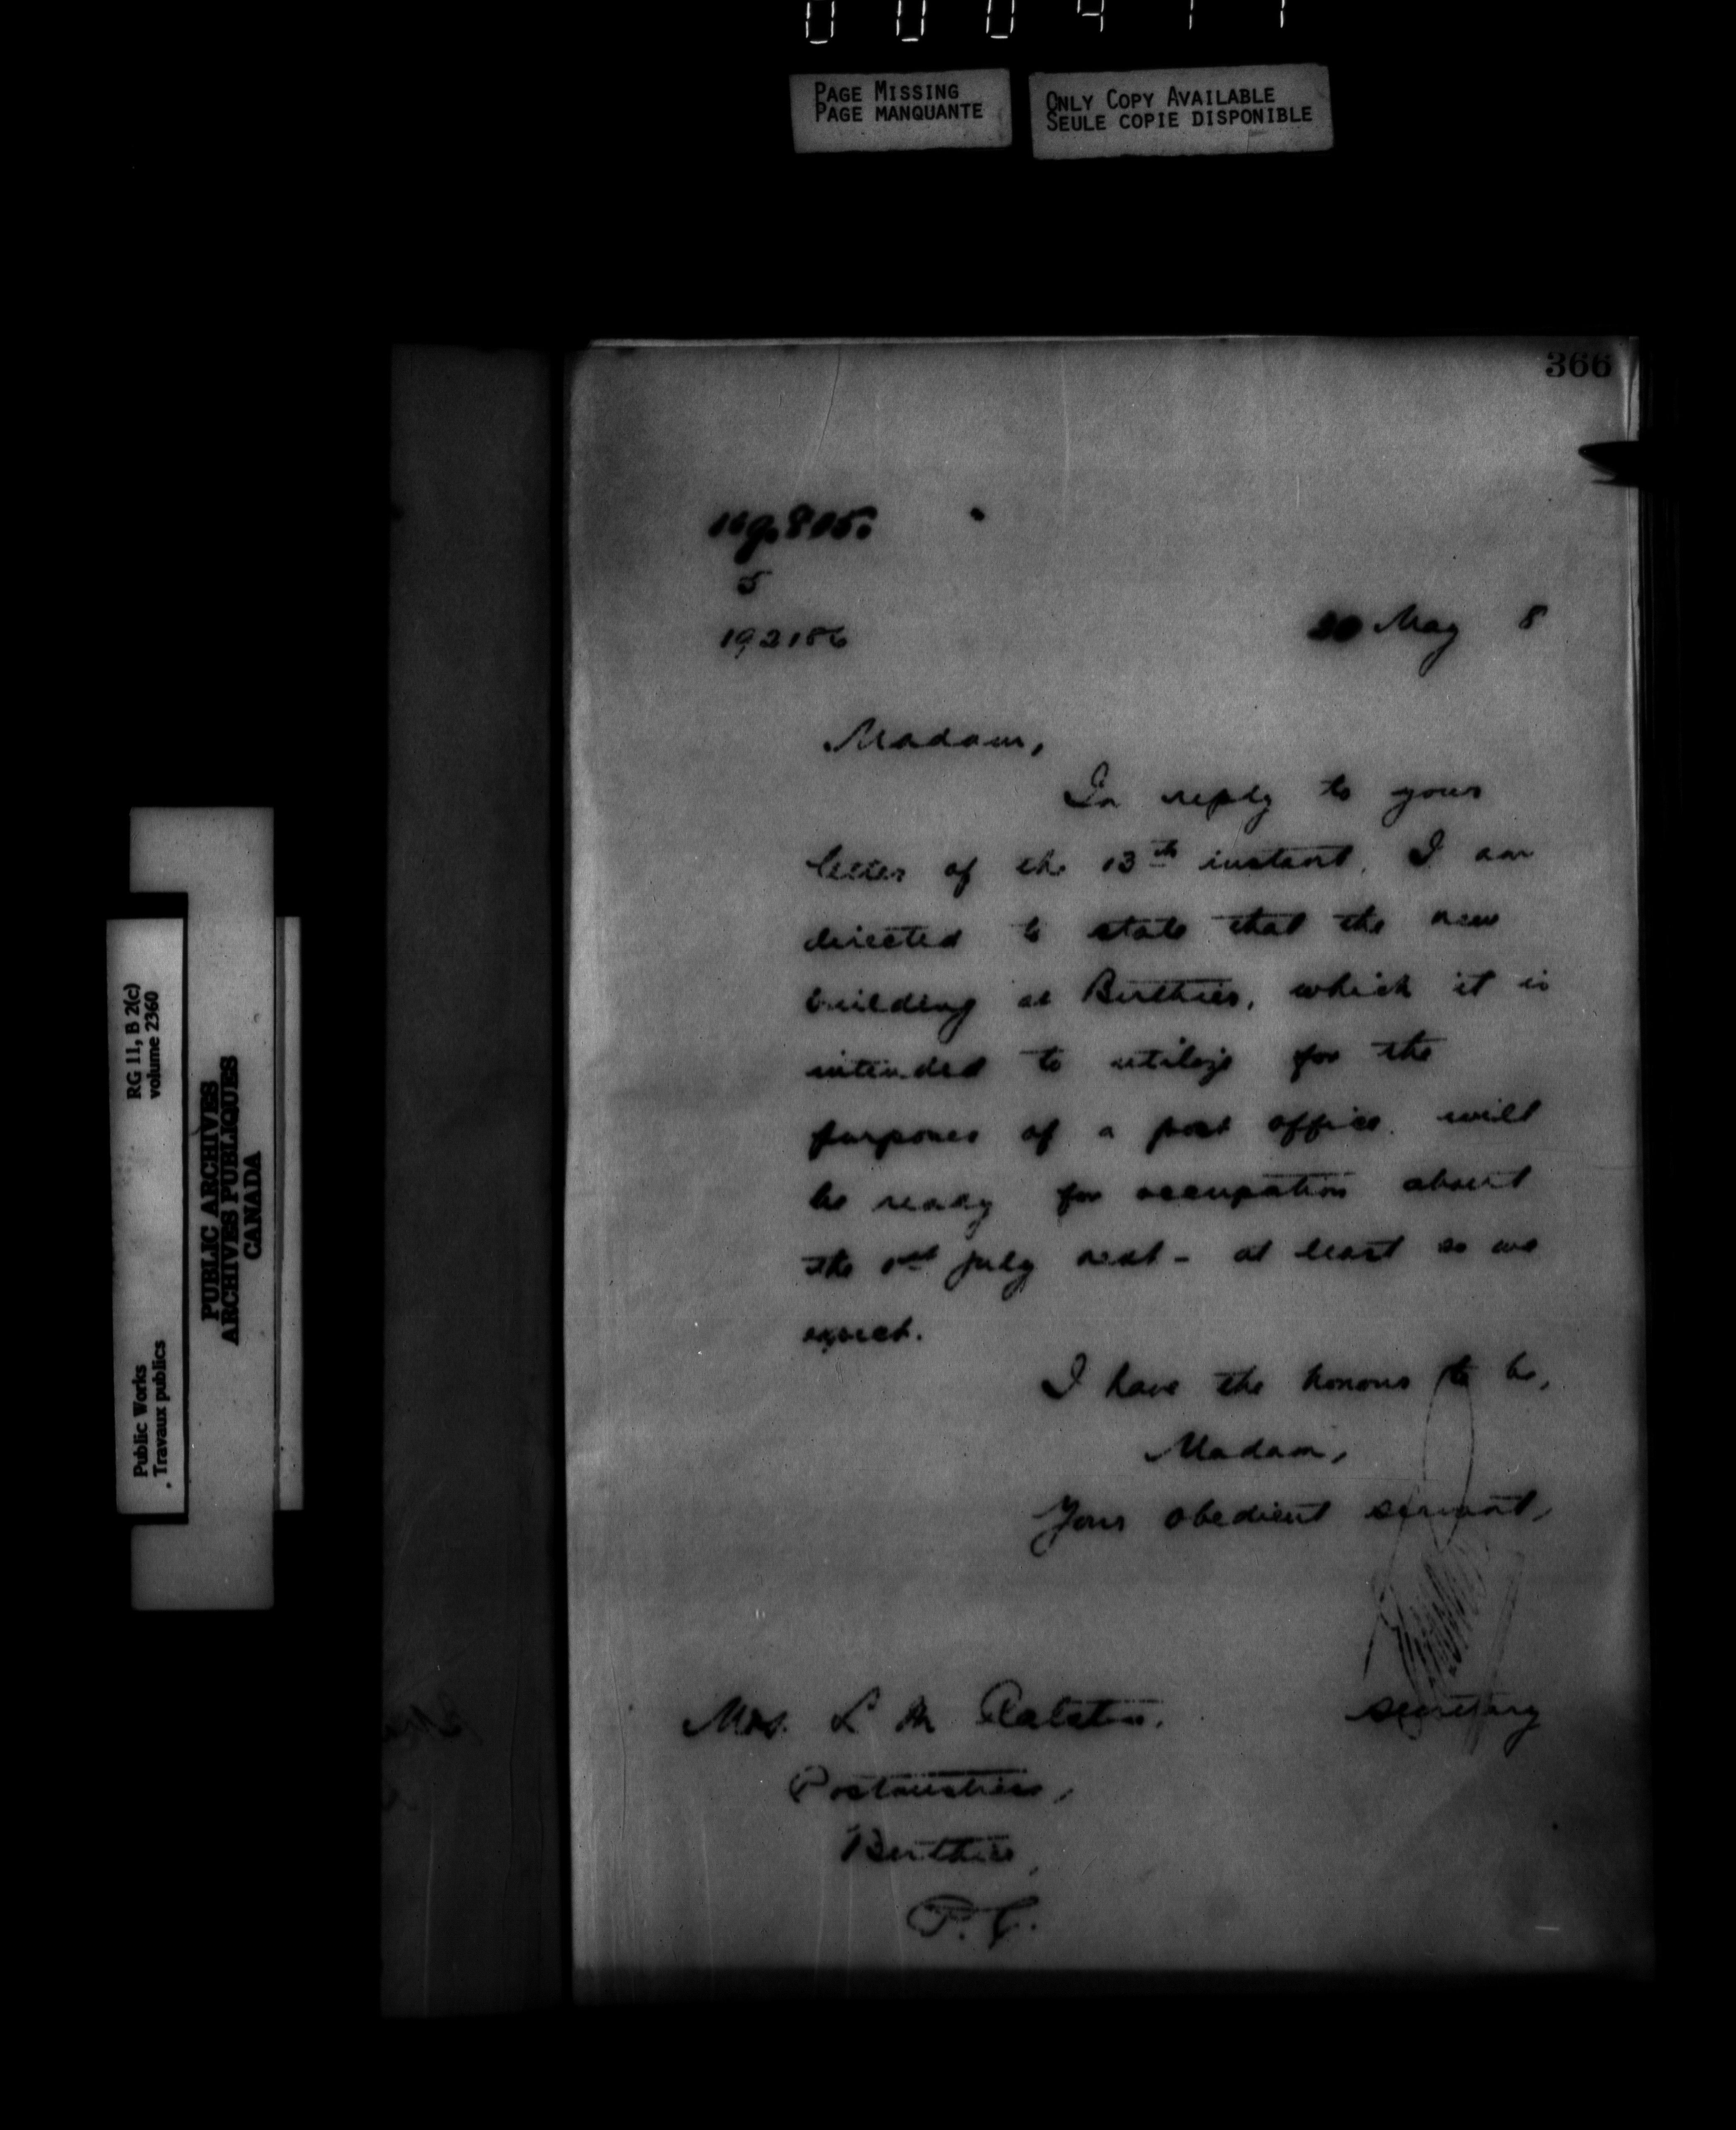 PAGE MISSING
PAGE MANQUANTE
ONLY COPY AVAILABLE
SEULE COPIE DISPONIBLE
366
5
192186
20 May 8
Madam,
In reply to your
letter of the 13th instant, I am
directed to state that the new
building at Berthier, which it is
intended to utilize for the
purposes of a post office will
be ready for occupation about
the 1st July next - at least so we
expect.
I have the honour to be,
Madam,
Your obedient servant,
Secretary
Mrs. L M Ralston.
Postmistress,
Berthier,
P.Q.
RG 11, B 2(c)
volume 2360
Public Works
Travaux publics
PUBLIC ARCHIVES
ARCHIVES PUBLIQUES
CANADA